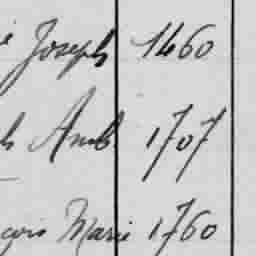 Joseph 1460
Amb 1707
Marie 1760